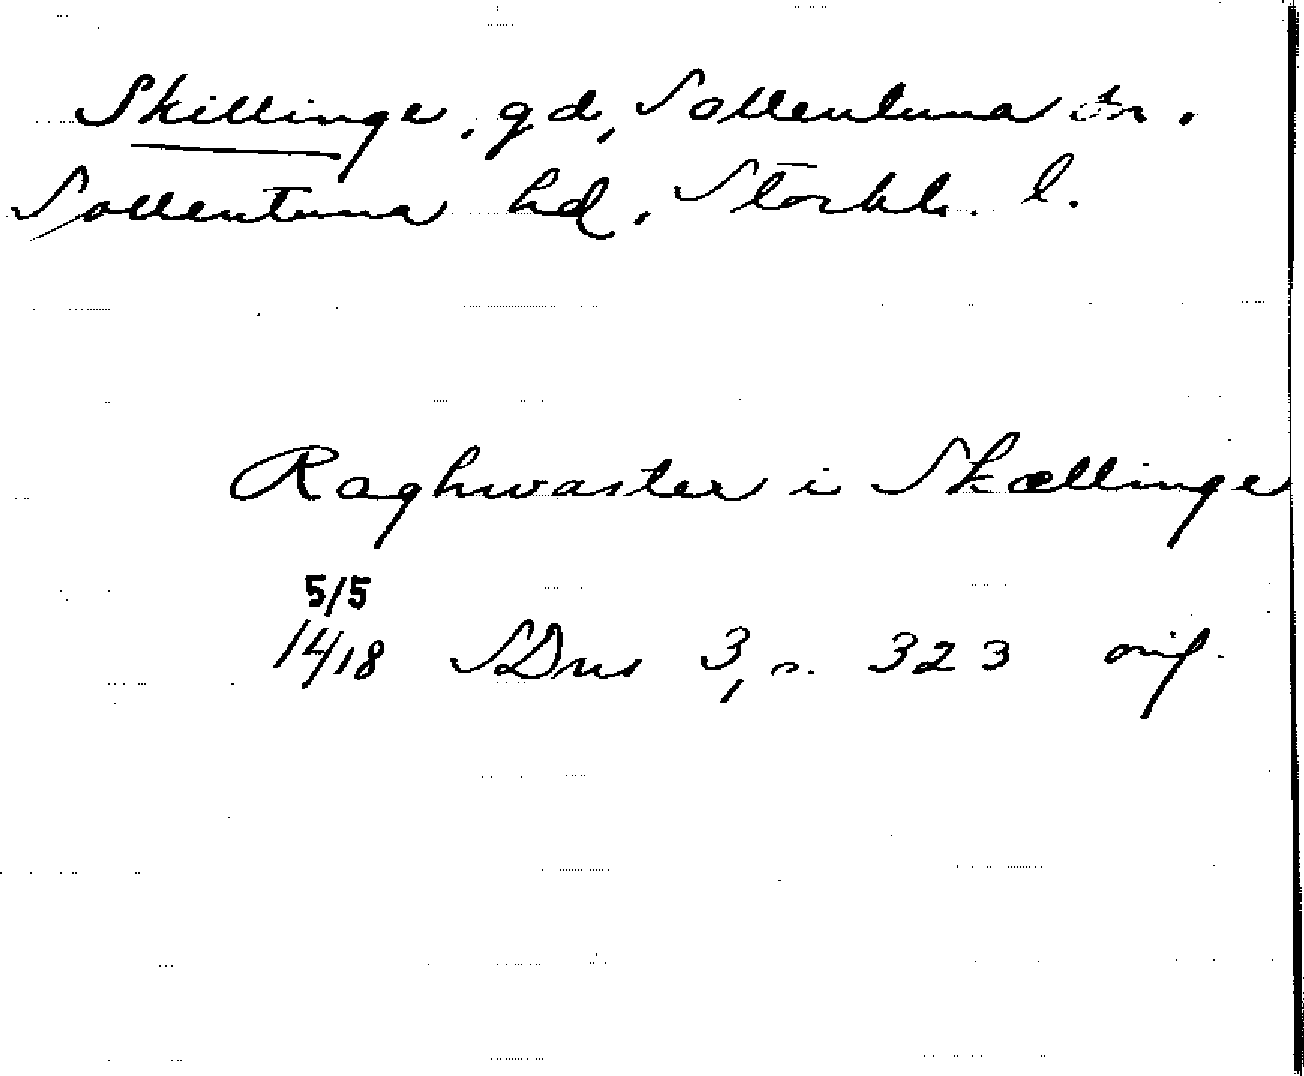 Skillinge, gd, Sollentuna sn.
Sollentuna hd, Stockh. l.
Raghwaster i Skællinge
5/5
1418 SDns 3, s. 323 orig.